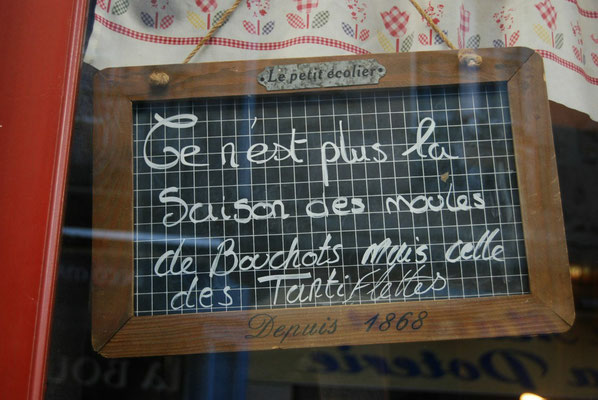 Le petit écolier
Ce n'est plus la
Saison des moules
de Bouchots Mais celle
des Tartiflettes
Depuis 1868
la Poterie
LA BOU